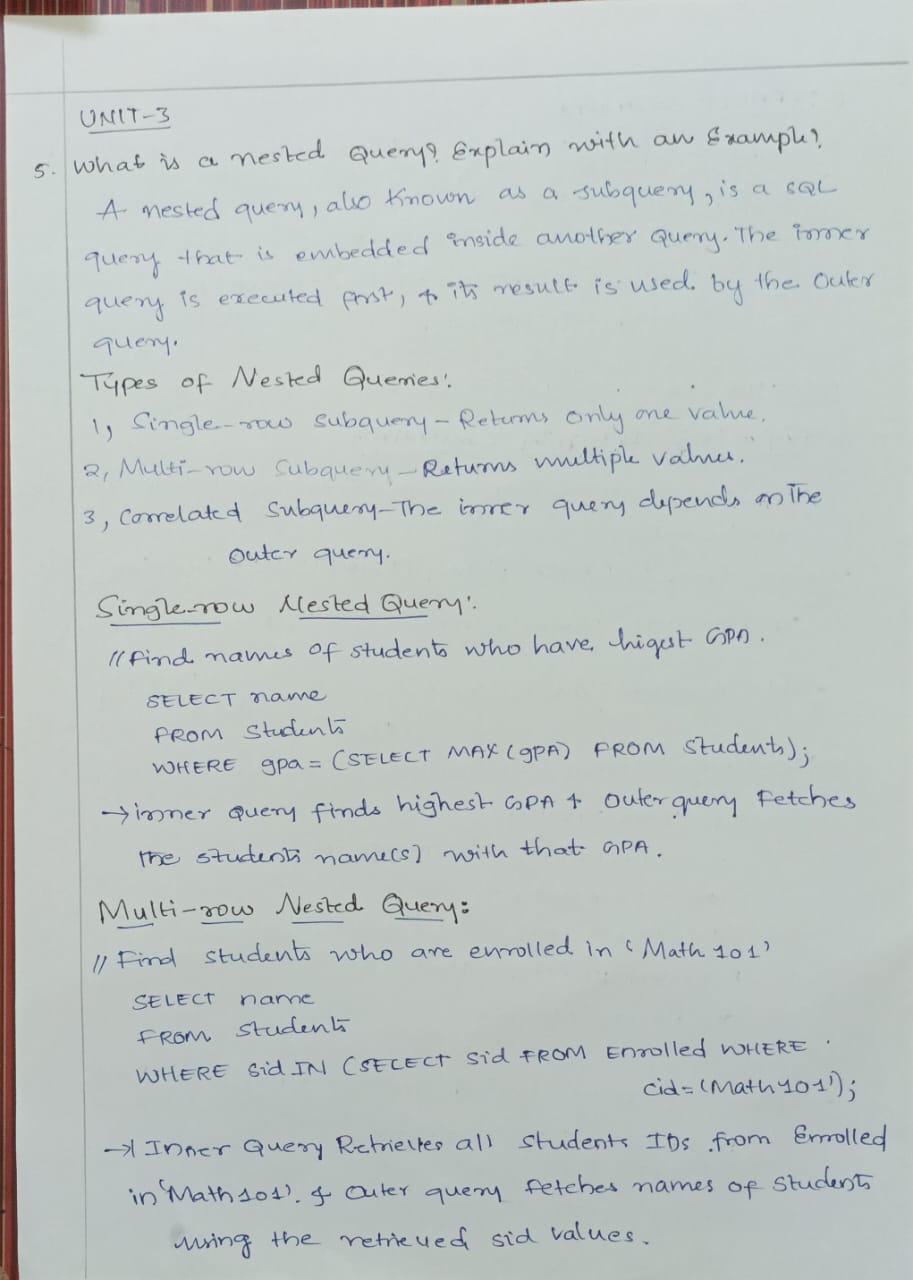 UNIT-3
5. What is a nested Query? Explain with an Example?
A nested query, also known as a subquery, is a SQL
query that is embedded inside another Query. The inner
query is executed first, & its result is used by the outer
query.
Types of Nested Queries:
1, Single-row subquery - Returns only one value.
2, Multi-row Subquery - Returns multiple values.
3, Correlated Subquery - The inner query depends on The
outer query.
Single-row Nested Query:
// Find names of students who have higest GPA.
SELECT name
FROM Students
WHERE gpa = (SELECT MAX(gPA) FROM Students);
→ inner Query finds highest GPA & Outer query Fetches
the students name(s) with that GPA.
Multi-row Nested Query:
// Find students who are enrolled in 'Math 101'
SELECT name
FROM Students
WHERE Sid IN (SELECT Sid FROM Enrolled WHERE
cid = 'Math 101');
→ Inner Query Retrieves all Students IDs from Enrolled
in 'Math 101'. & Outer query fetches names of Students
using the retrieved sid values.